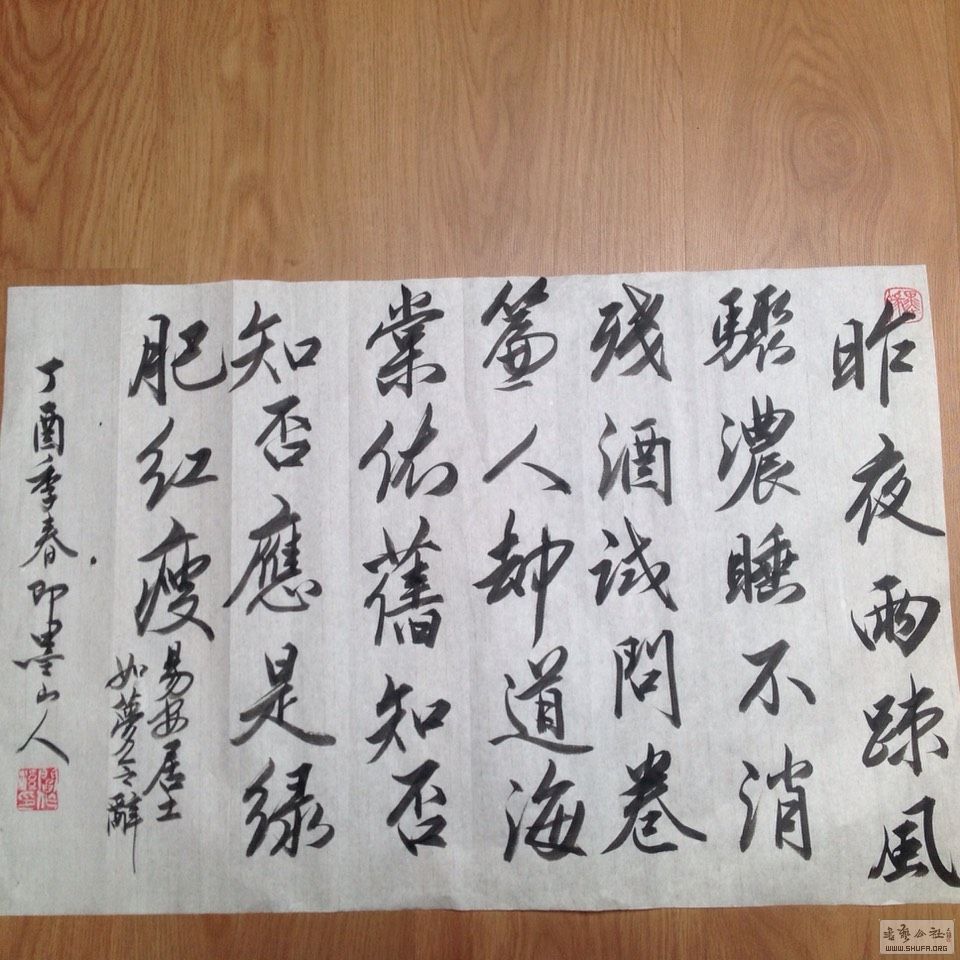 昨夜雨踈風
驟濃睡不消
残酒試問卷
簾人却道海
棠依舊知否
知否應是绿
肥红瘦
易安居士
如夢令辭
丁酉季春即墨山人
WWW.SHUFA.ORG